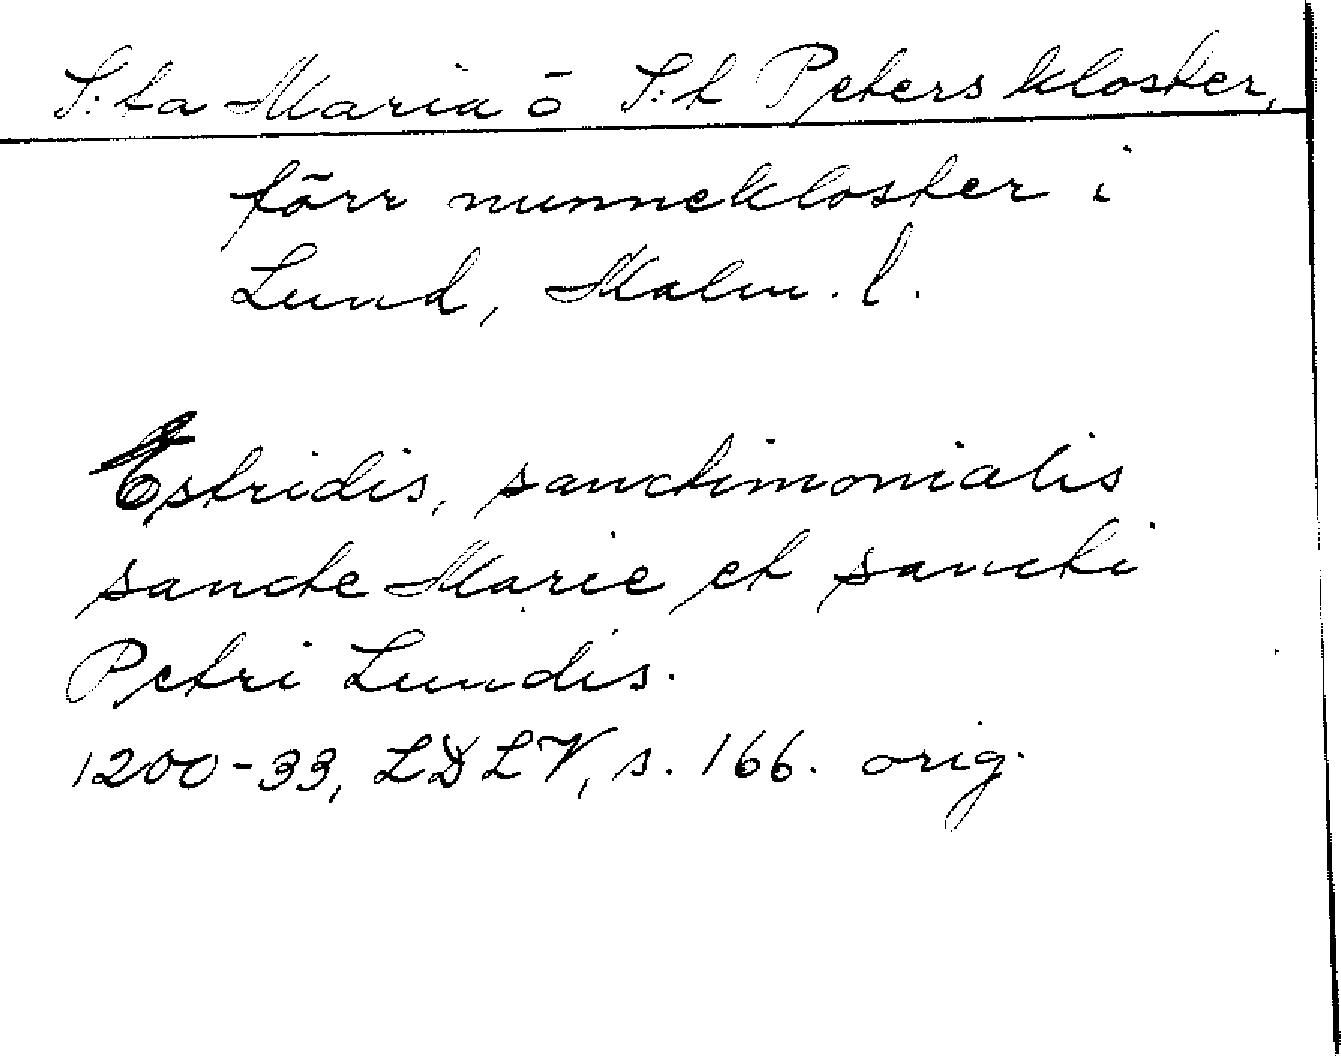 S:ta Maria o S:t Peters kloster,
förr nunnekloster i
Lund, Malm. l.
Estridis, sanctimonialis
sancte Marie et sancti
Petri Lundis.
1200-33, LDLV, s. 166. orig.